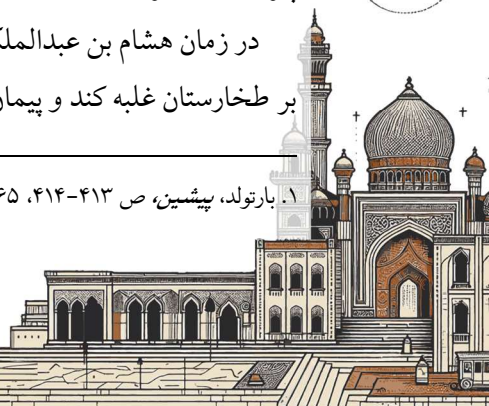 در زمان هشام بن عبدالملک
بر طخارستان غلبه کند و پیمان
۱. بارتولد، پیشین، ص ۴۱۳-۴۱۴، ۶۵